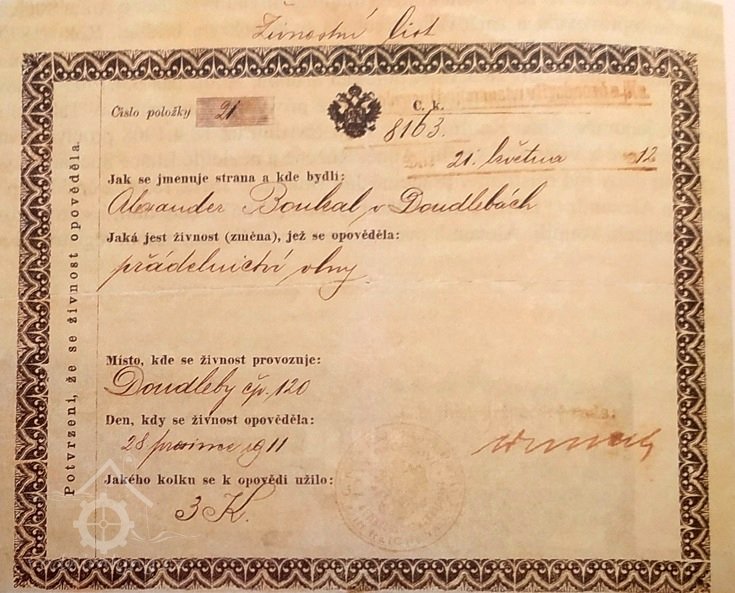 Živnostní list
Číslo položky 21
C. k.
8163.
21. května 12
Jak se jmenuje strana a kde bydlí:
Alexander Boukal v Doudlebách
Jaká jest živnost (změna), jež se opověděla:
přádelnictví vlny
Místo, kde se živnost provozuje:
Doudleby čp. 120
Den, kdy se živnost opověděla:
28 prosince 1911
Jakého kolku se k opovědi užilo:
3 K.
Potvrzení, že se živnost opověděla.